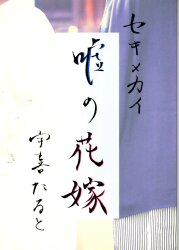 セキ×カイ
嘘の花嫁
宇喜たると